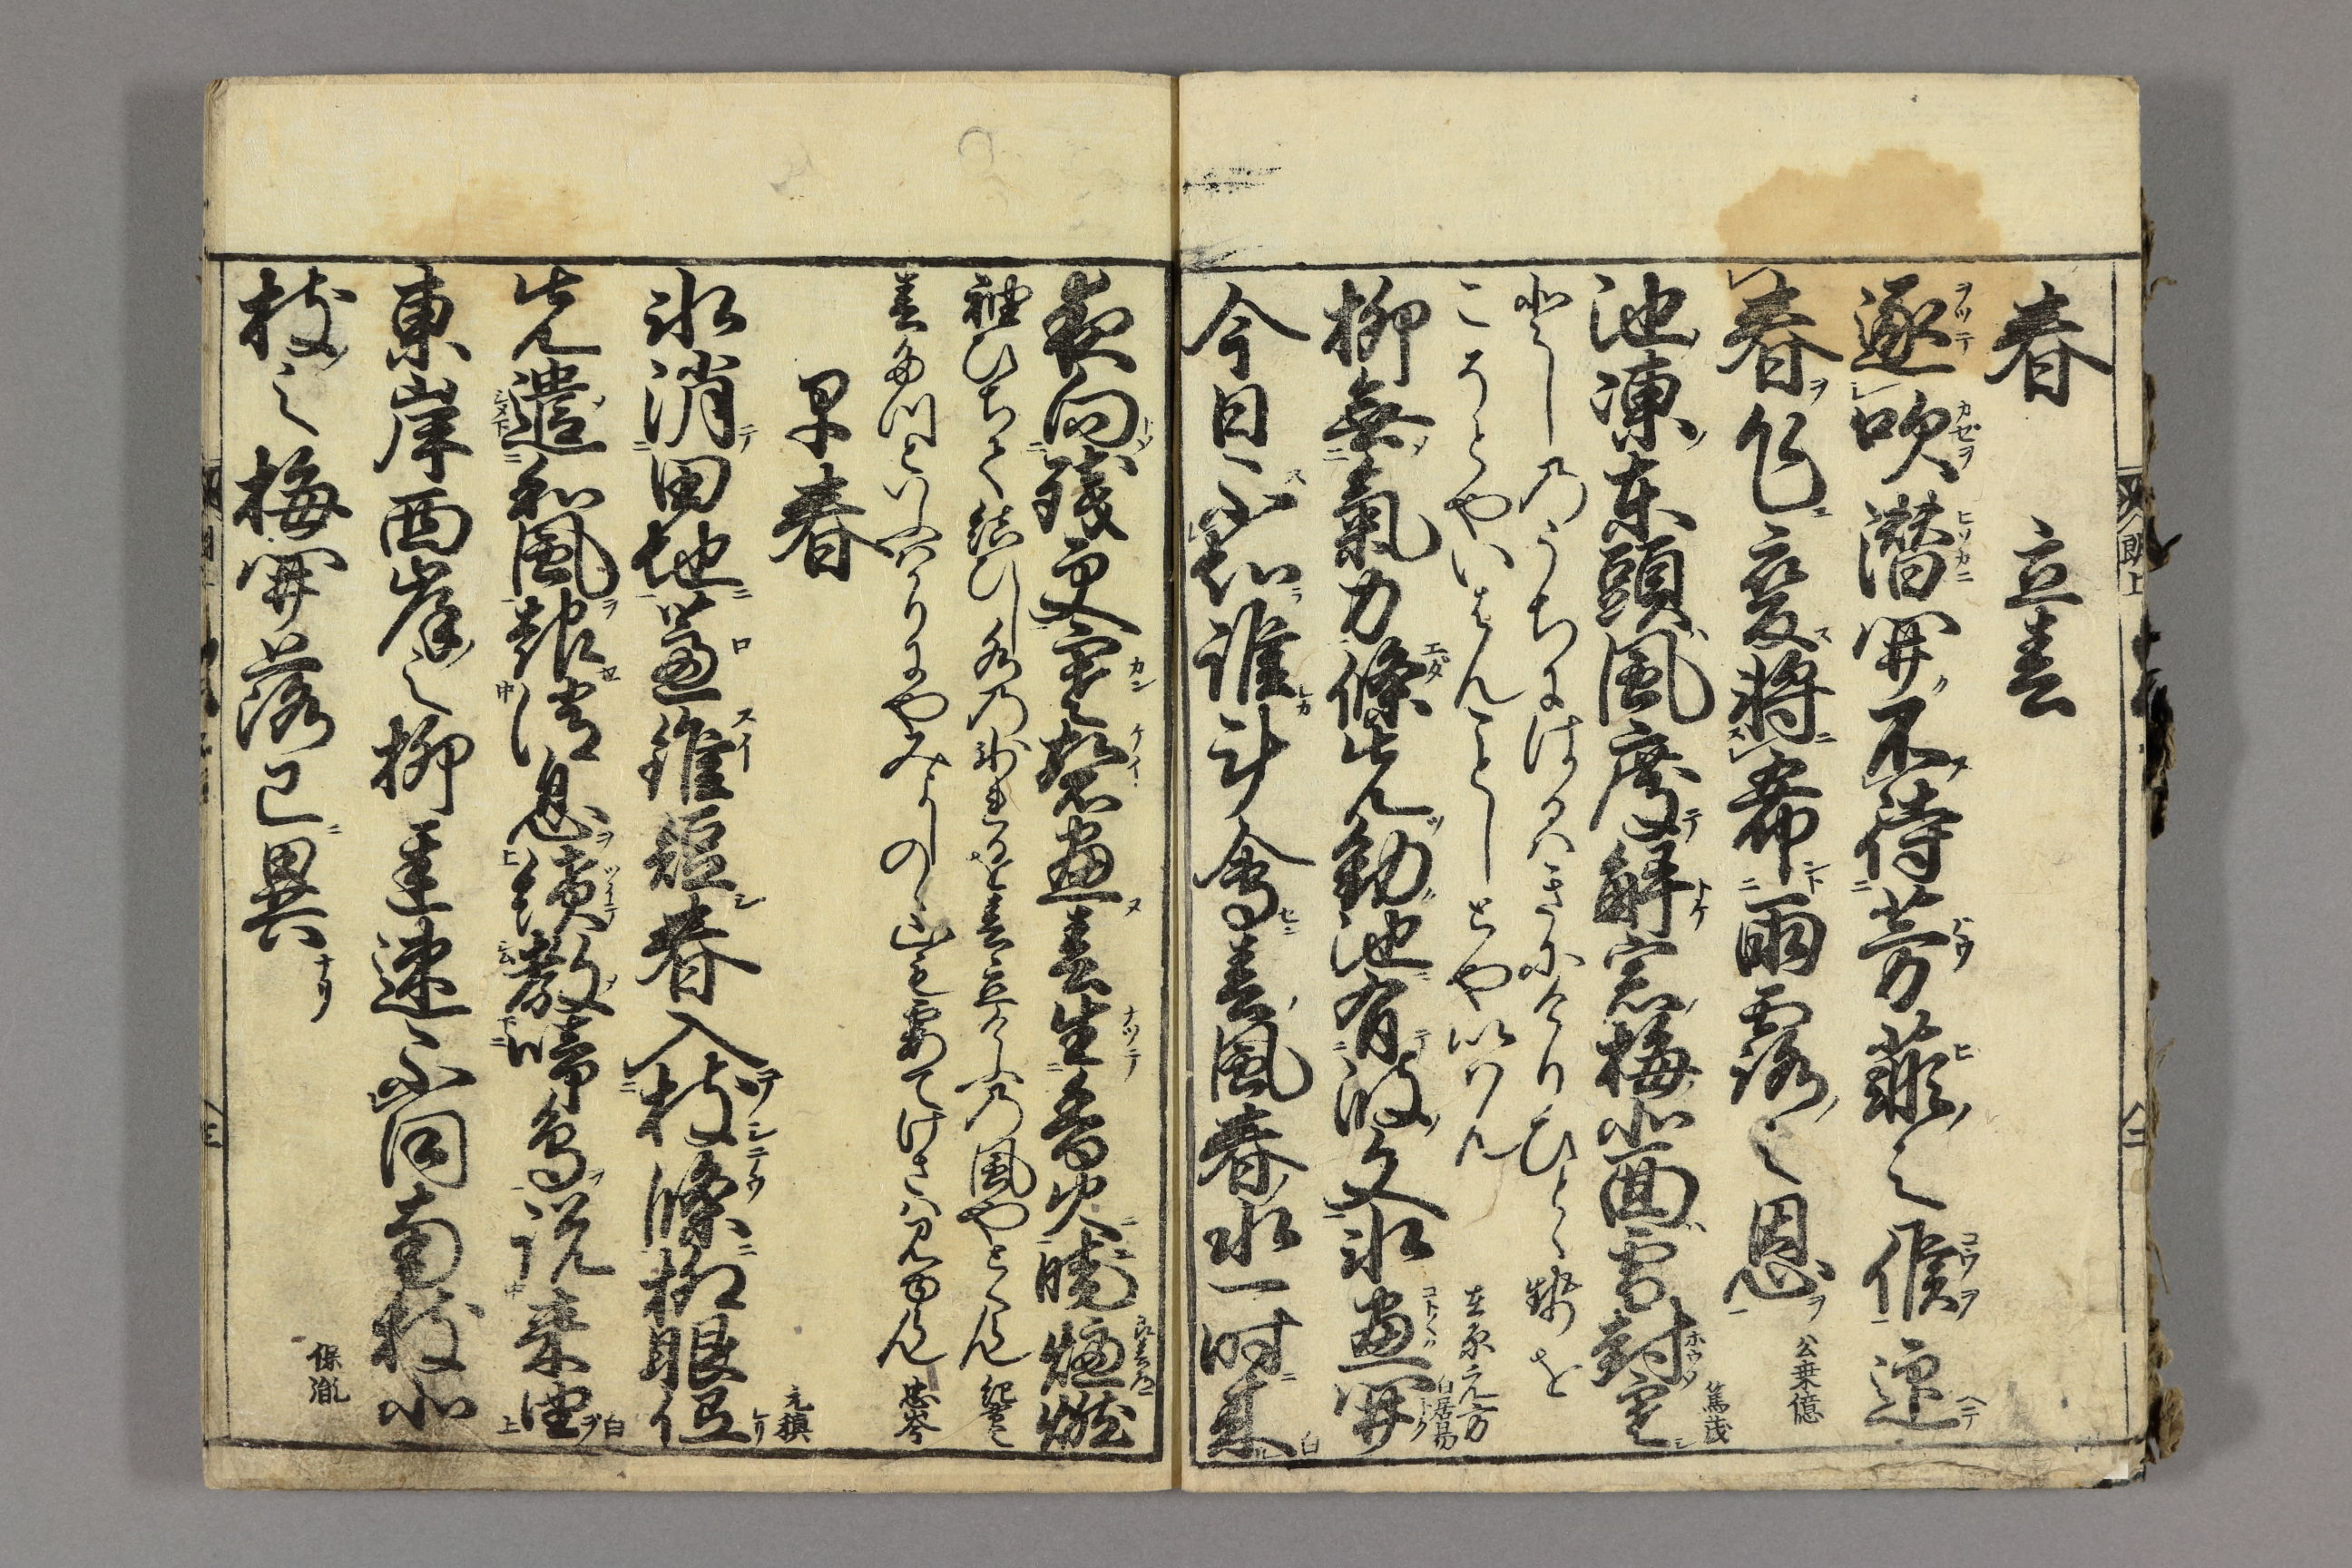 春
立春
逐吹潜開不待芳菲之候迎
春乍変将希雨露之恩 公乗億
池凍東頭風度解窓梅北面雪封寒 篤茂
としのうちにはるはきにけりひとゝせを
こそとやいはんことしとやいはん 在原元方
柳無氣力條先動池有波文氷尽開 白居易
今日不知誰計會春風春水一时来 白
夜向残更寒磬尽春生香火暁爐燃 良春道
袖ひちて結ひし水のこほれるを春立けふの風やとくらん 紀貫之
春たつといふはかりにやみよしのゝ山も霞てけさは見ゆらん 忠岑
早春
氷消田地蘆錐短春入枝條柳眼低 元稹
先遣和風報消息續教啼鳥説来由 白
東岸西岸之柳遅速不同南枝北
枝之梅開落已異 保胤